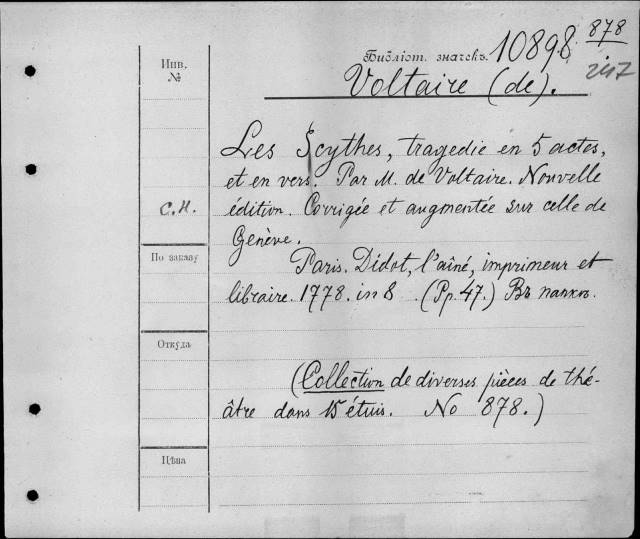 Инв.
№
С.Н.
По заказу
Откуда
Цѣна
Библіот. значекъ. 10898 878
247
Voltaire (de).
Les Scythes, tragedie en 5 actes,
et en vers. Par M. de Voltaire. Nouvelle
édition. Corrigée et augmentée sur celle de
Genève.
Paris. Didot, l'aîné, imprimeur et
libraire. 1778. in 8 . (Pp. 47.) Въ папкѣ.
(Collection de diverses pièces de thé-
âtre dans 15 étuis. No 878.)